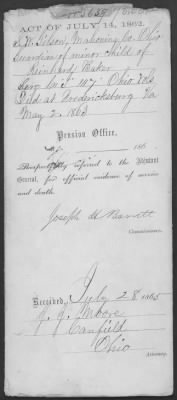 ACT OF JULY 14, 1862.
Mahoning Co. Ohio
Guardian of minor child of
Reinhard Baker
Corp Co. I 107" Ohio Vols
Died at Fredericksburg Va
May 2. 1863
Pension Office,
186
Respectfully referred to the Adjutant
General, for official evidence of service
and death.
Joseph H Barrett
Commissioner.
Received, July 28 1865
J. J. Moore
Canfield
Ohio
Attorney.